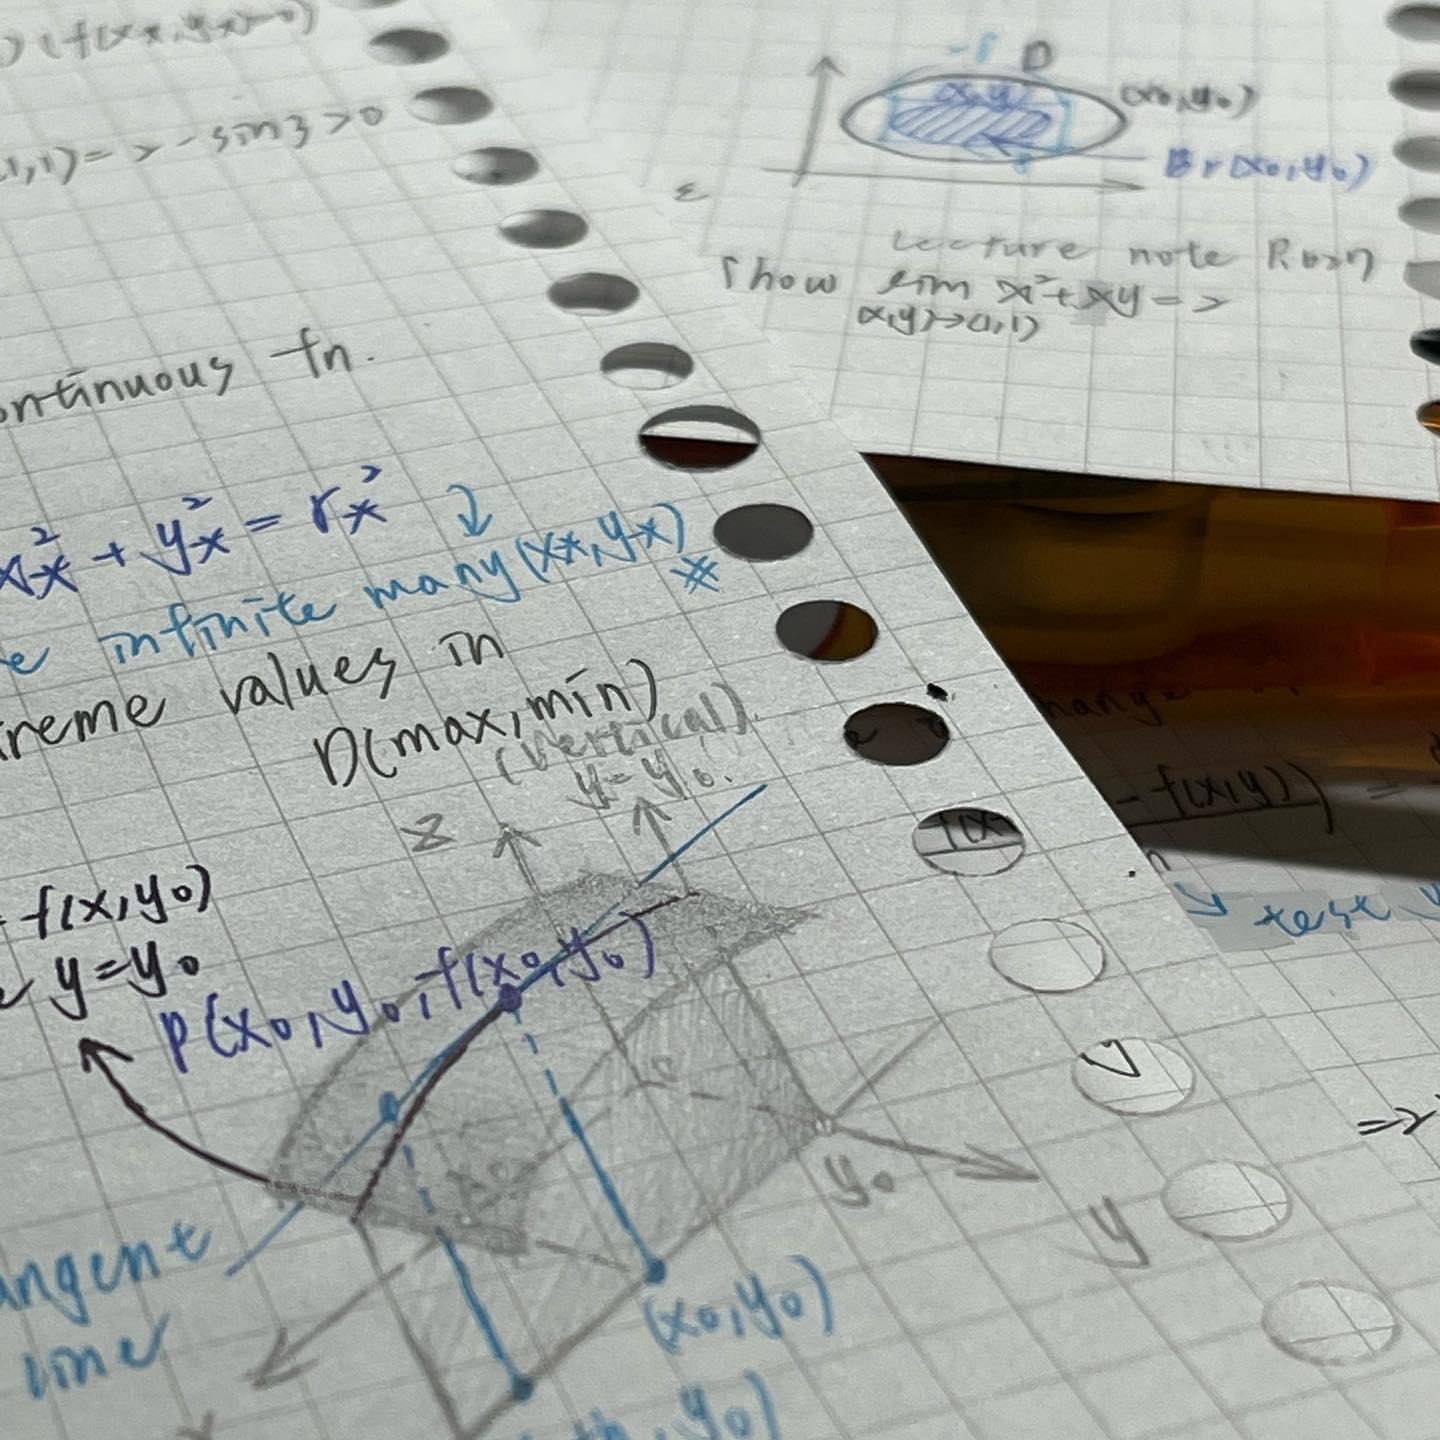 (f(x*,y*)=0)
1,1)=>-sin3>0
ontinuous fn.
x*²+y*²=r*²
e infinite many(x*,y*)
reme values in
D(max,min)
(vertical)
y=y₀.
z
f(x,y₀)
y=y₀
P(x₀,y₀,f(x₀,y₀)
y₀
y
angent
line
(x₀,y₀)
,y₀)
-δ D
(x,y)
(x₀,y₀)
Br(x₀,y₀)
ε
Lecture note
Show lim x²+xy=2
(x,y)→(1,1)
hange
-f(x,y))
=
f(x
test
=>